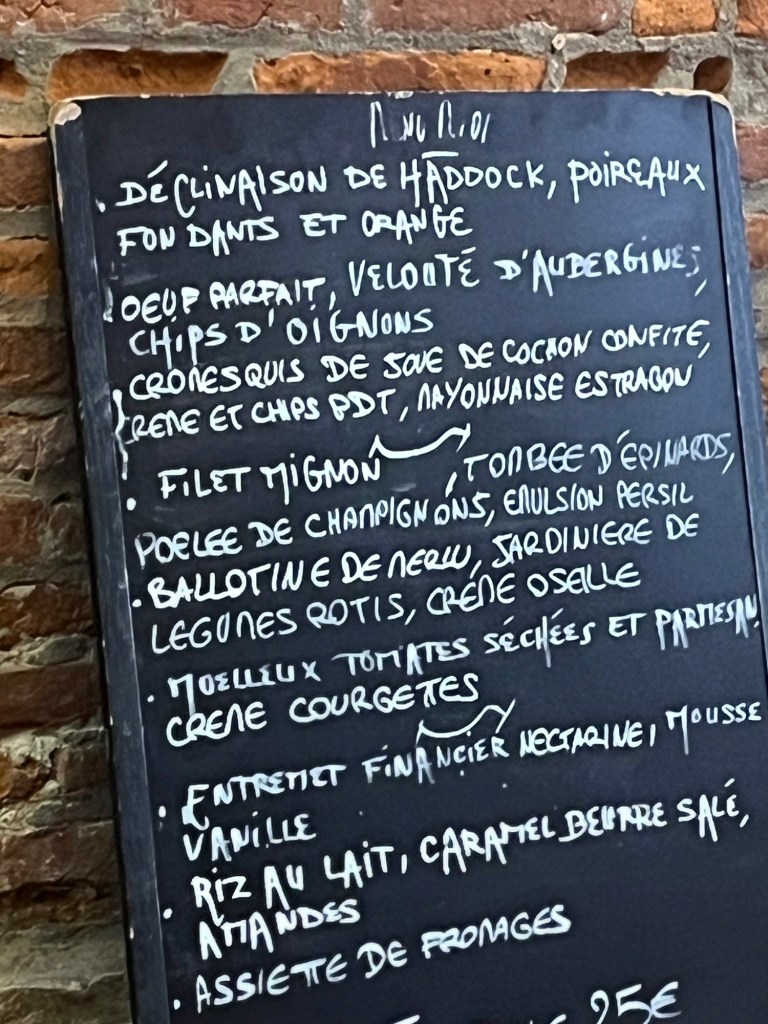 MENU MIDI
. DÉCLINAISON DE HADDOCK, POIREAUX
FONDANTS ET ORANGE
. OEUF PARFAIT, VELOUTÉ D'AUBERGINES,
CHIPS D'OIGNONS
CROMESQUIS DE JOUE DE COCHON CONFITE,
CREME ET CHIPS PDT, MAYONNAISE ESTRAGON
. FILET MIGNON, TOMBEE D'ÉPINARDS,
POELEE DE CHAMPIGNONS, EMULSION PERSIL
. BALLOTINE DE MERLU, JARDINIERE DE
LEGUMES ROTIS, CRÉME OSEILLE
. MOELLEUX TOMATES SÉCHÉES ET PARMESAN
CREME COURGETTES
. ENTREMET FINANCIER NECTARINE, MOUSSE
VANILLE
. RIZ AU LAIT, CARAMEL BEURRE SALÉ,
AMANDES
. ASSIETTE DE FROMAGES
25€